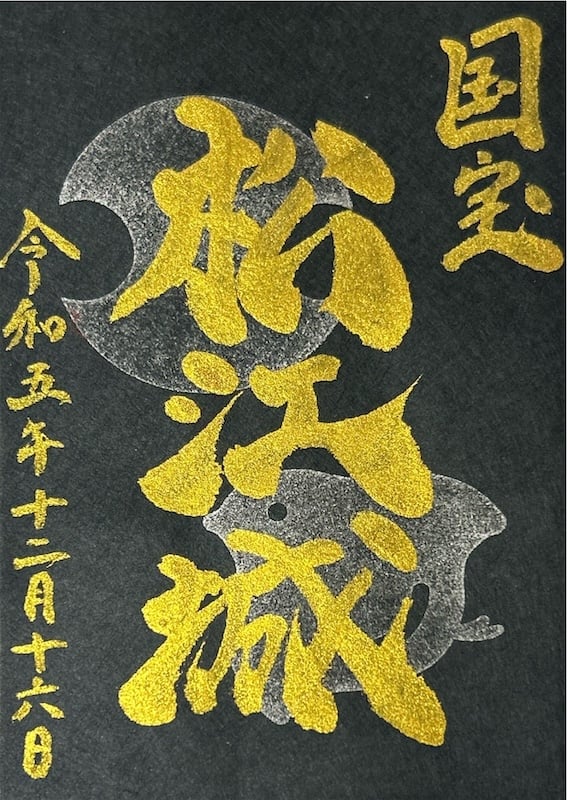 国宝
松江城
令和五年十二月十六日